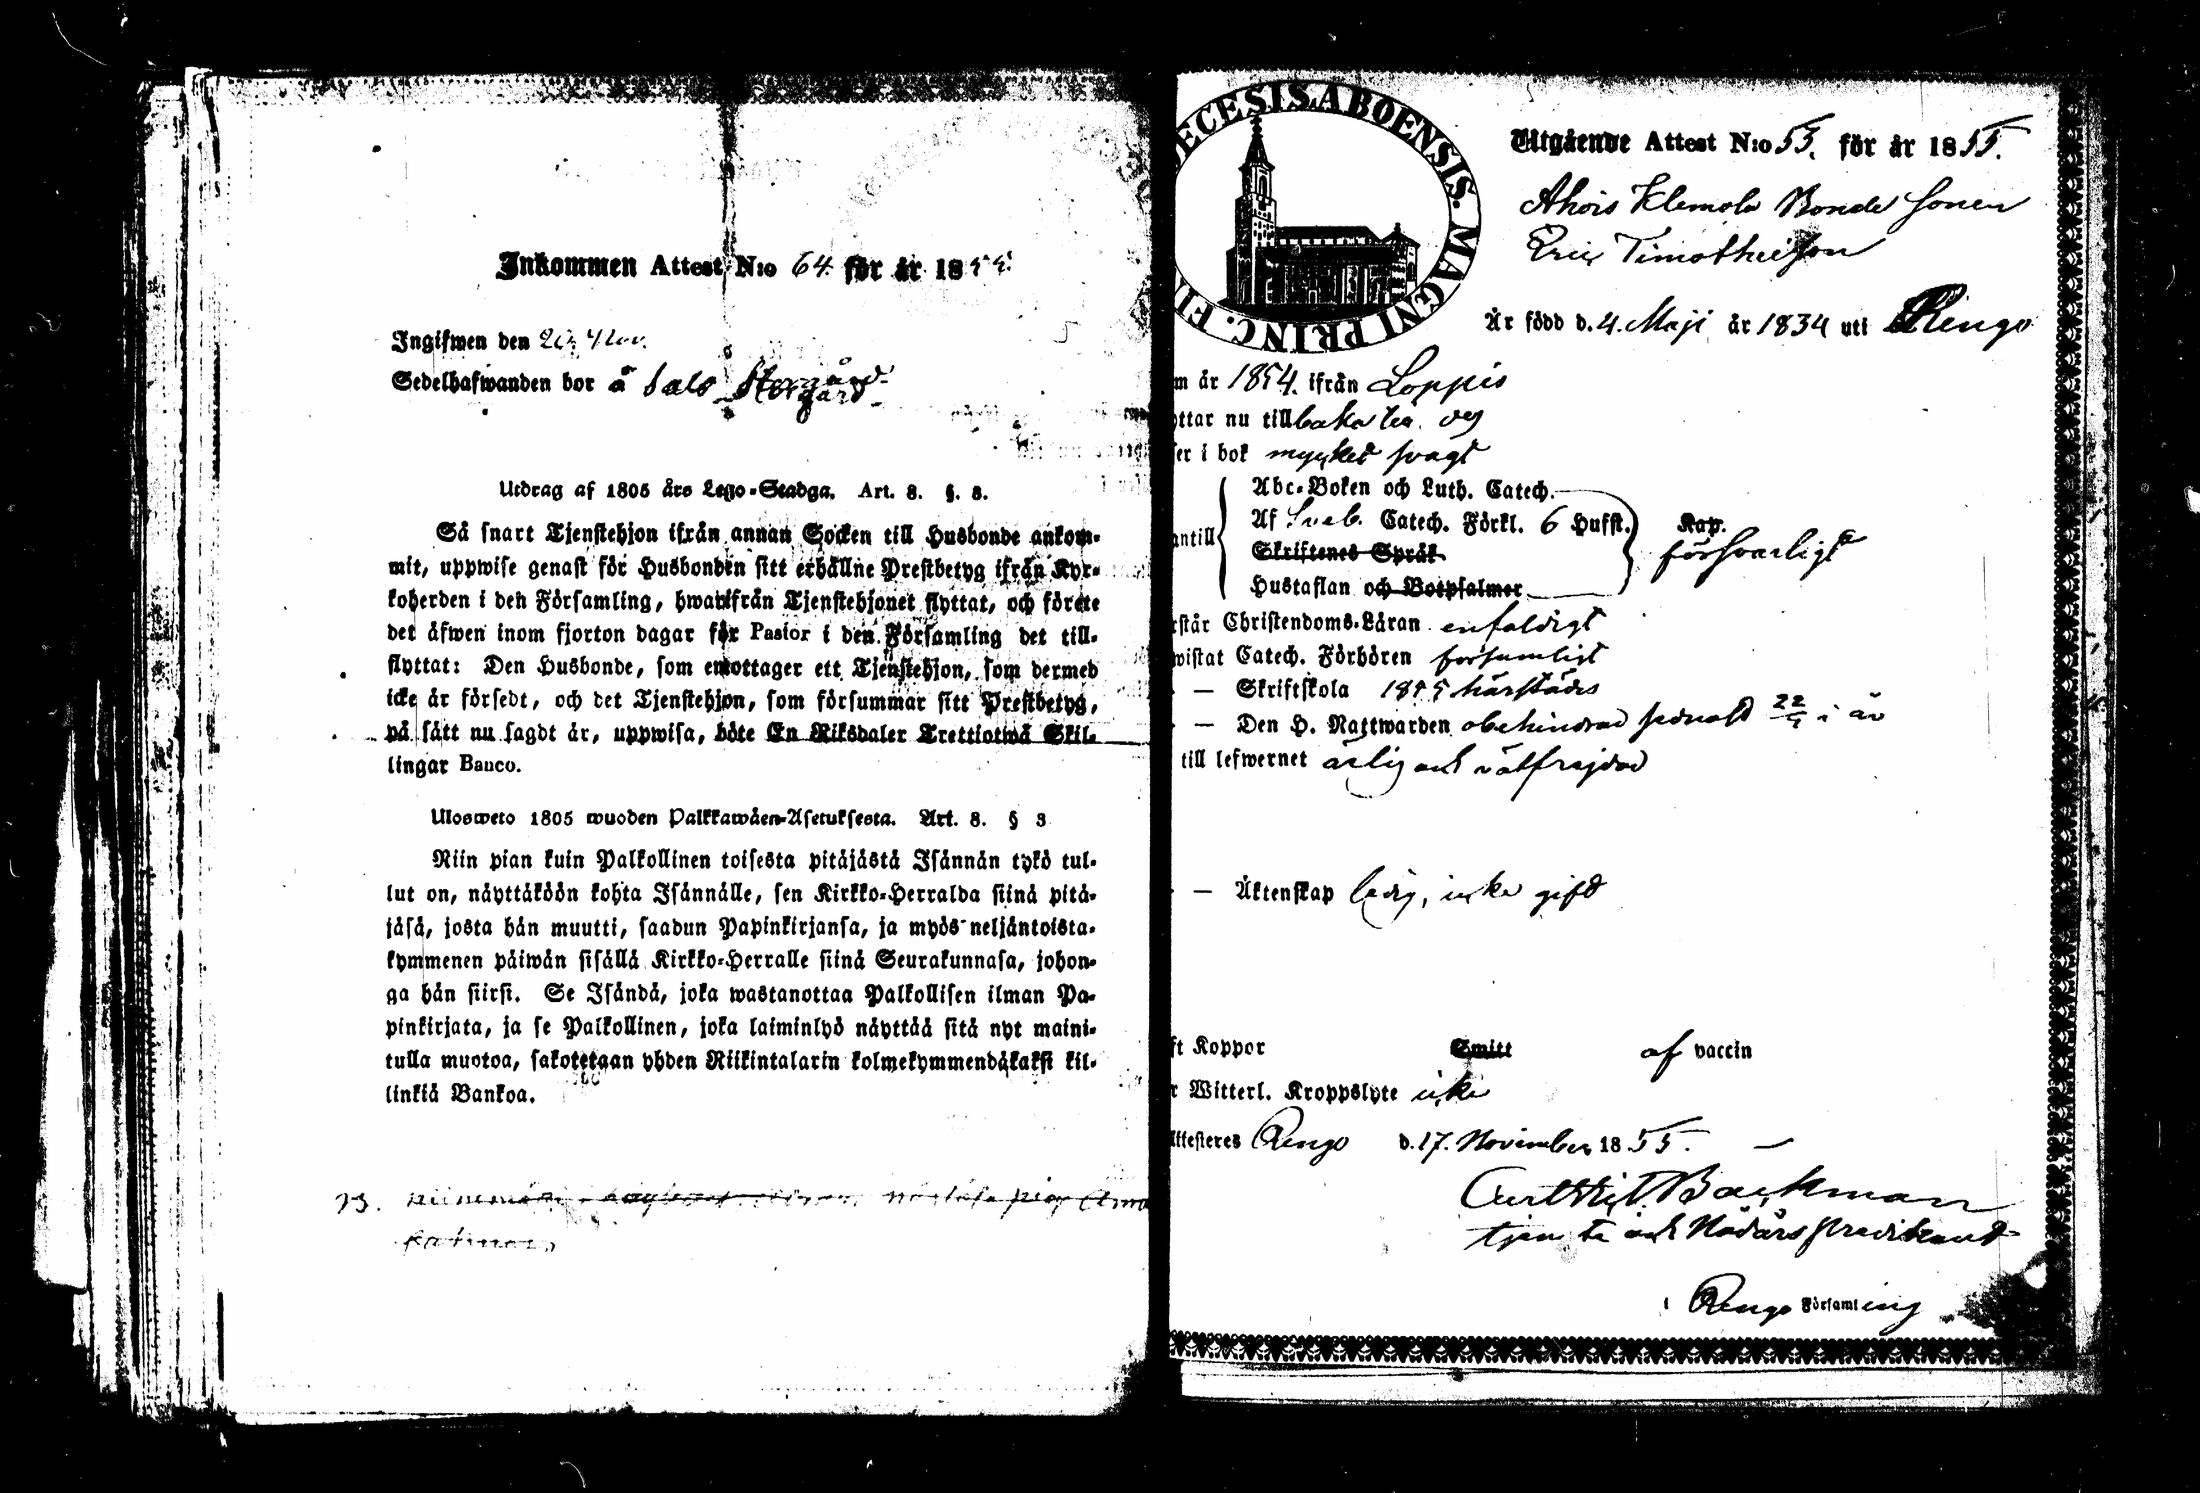 Inkommen Attest N:o 64. för år 1855.
Ingifwen den Nov.
Sedelhafwanden bor å Sals Storgård
Utdrag af 1805 års Lego-Stadga. Art. 8. §. 8.
Så snart Tjenstehjon ifrån annan Socken till Husbonde ankom-
mit, uppwise genast för Husbonden sitt erhållne Prestbetyg ifrån Kyr-
koherden i den Församling, hwarifrån Tjenstehjonet flyttat, och förete
det äfwen inom fjorton dagar för Pastor i den Församling det till-
flyttat: Den Husbonde, som emottager ett Tjenstehjon, som dermed
icke är försedt, och det Tjenstehjon, som försummar sitt Prestbetyg,
på sätt nu sagdt är, uppwisa, böte En Riksdaler Trettiotwå Skil-
lingar Banco.
Ulosweto 1805 wuoden Palkkawäen-Asetuksesta. Art. 8. § 3
Niin pian kuin Palkollinen toisesta pitäjästä Isännän tykö tul-
lut on, näyttäköön kohta Isännälle, sen Kirkko-Herralda siinä pitä-
jäsä, josta hän muutti, saadun Papinkirjansa, ja myös neljäntoista-
kymmenen päiwän sisällä Kirkko-Herralle siinä Seurakunnasa, johon-
ga hän siirsi. Se Isändä, joka wastanottaa Palkollisen ilman Pa-
pinkirjata, ja se Palkollinen, joka laiminlyö näyttää sitä nyt maini-
tulla muotoa, sakotetaan yhden Riikintalarin kolmekymmendäkaksi kil-
linkiä Bankoa.
ECESIS ABOENSIS. MAGNI PRINC. FI
Utgående Attest N:o 53. för år 1855.
Ahois Klemola Bonde Sonen
Eric Timotheisson
Är född d. 4. Maji år 1834 uti Rengo
m år 1854. ifrån Loppis
yttar nu tillbaka
ser i bok mycket svagt
Abc-Boken och Luth. Catech.
Af Sveb. Catech. Förkl. 6 Hufst. Kap.
antill försvarligt
Skriftenes Språk
Hustaflan och Botpsalmer
rstår Christendoms-Läran enfaldigt
wistat Catech. Förhören försumligt
— Skriftskola 1855 härstädes
— Den H. Nattwarden obehindrad senast 22/4 i år
till lefwernet ärlig och välfrejdad
— Äktenskap ledig, icke gift
ft Koppor Smitt af vaccin
r Witterl. Kroppslyte icke
Attesteres Rengo d. 17. November 1855.
Backman
tjenste och Nådårs predikant
i Rengo Församling